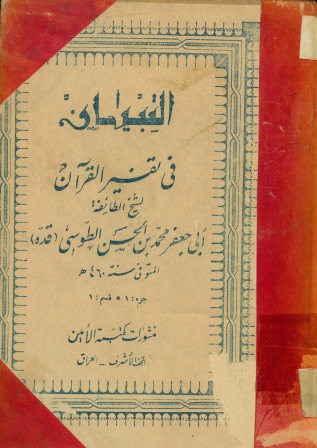 التبيان
في تفسير القرآن
لشيخ الطائفة
أبي جعفر محمد بن الحسن الطوسي (قده)
المتوفى سنة ٤٦٠ هـ
جزء : ١ * قسم : ١
منشورات مكتبة الأمين
النجف الأشرف - العراق